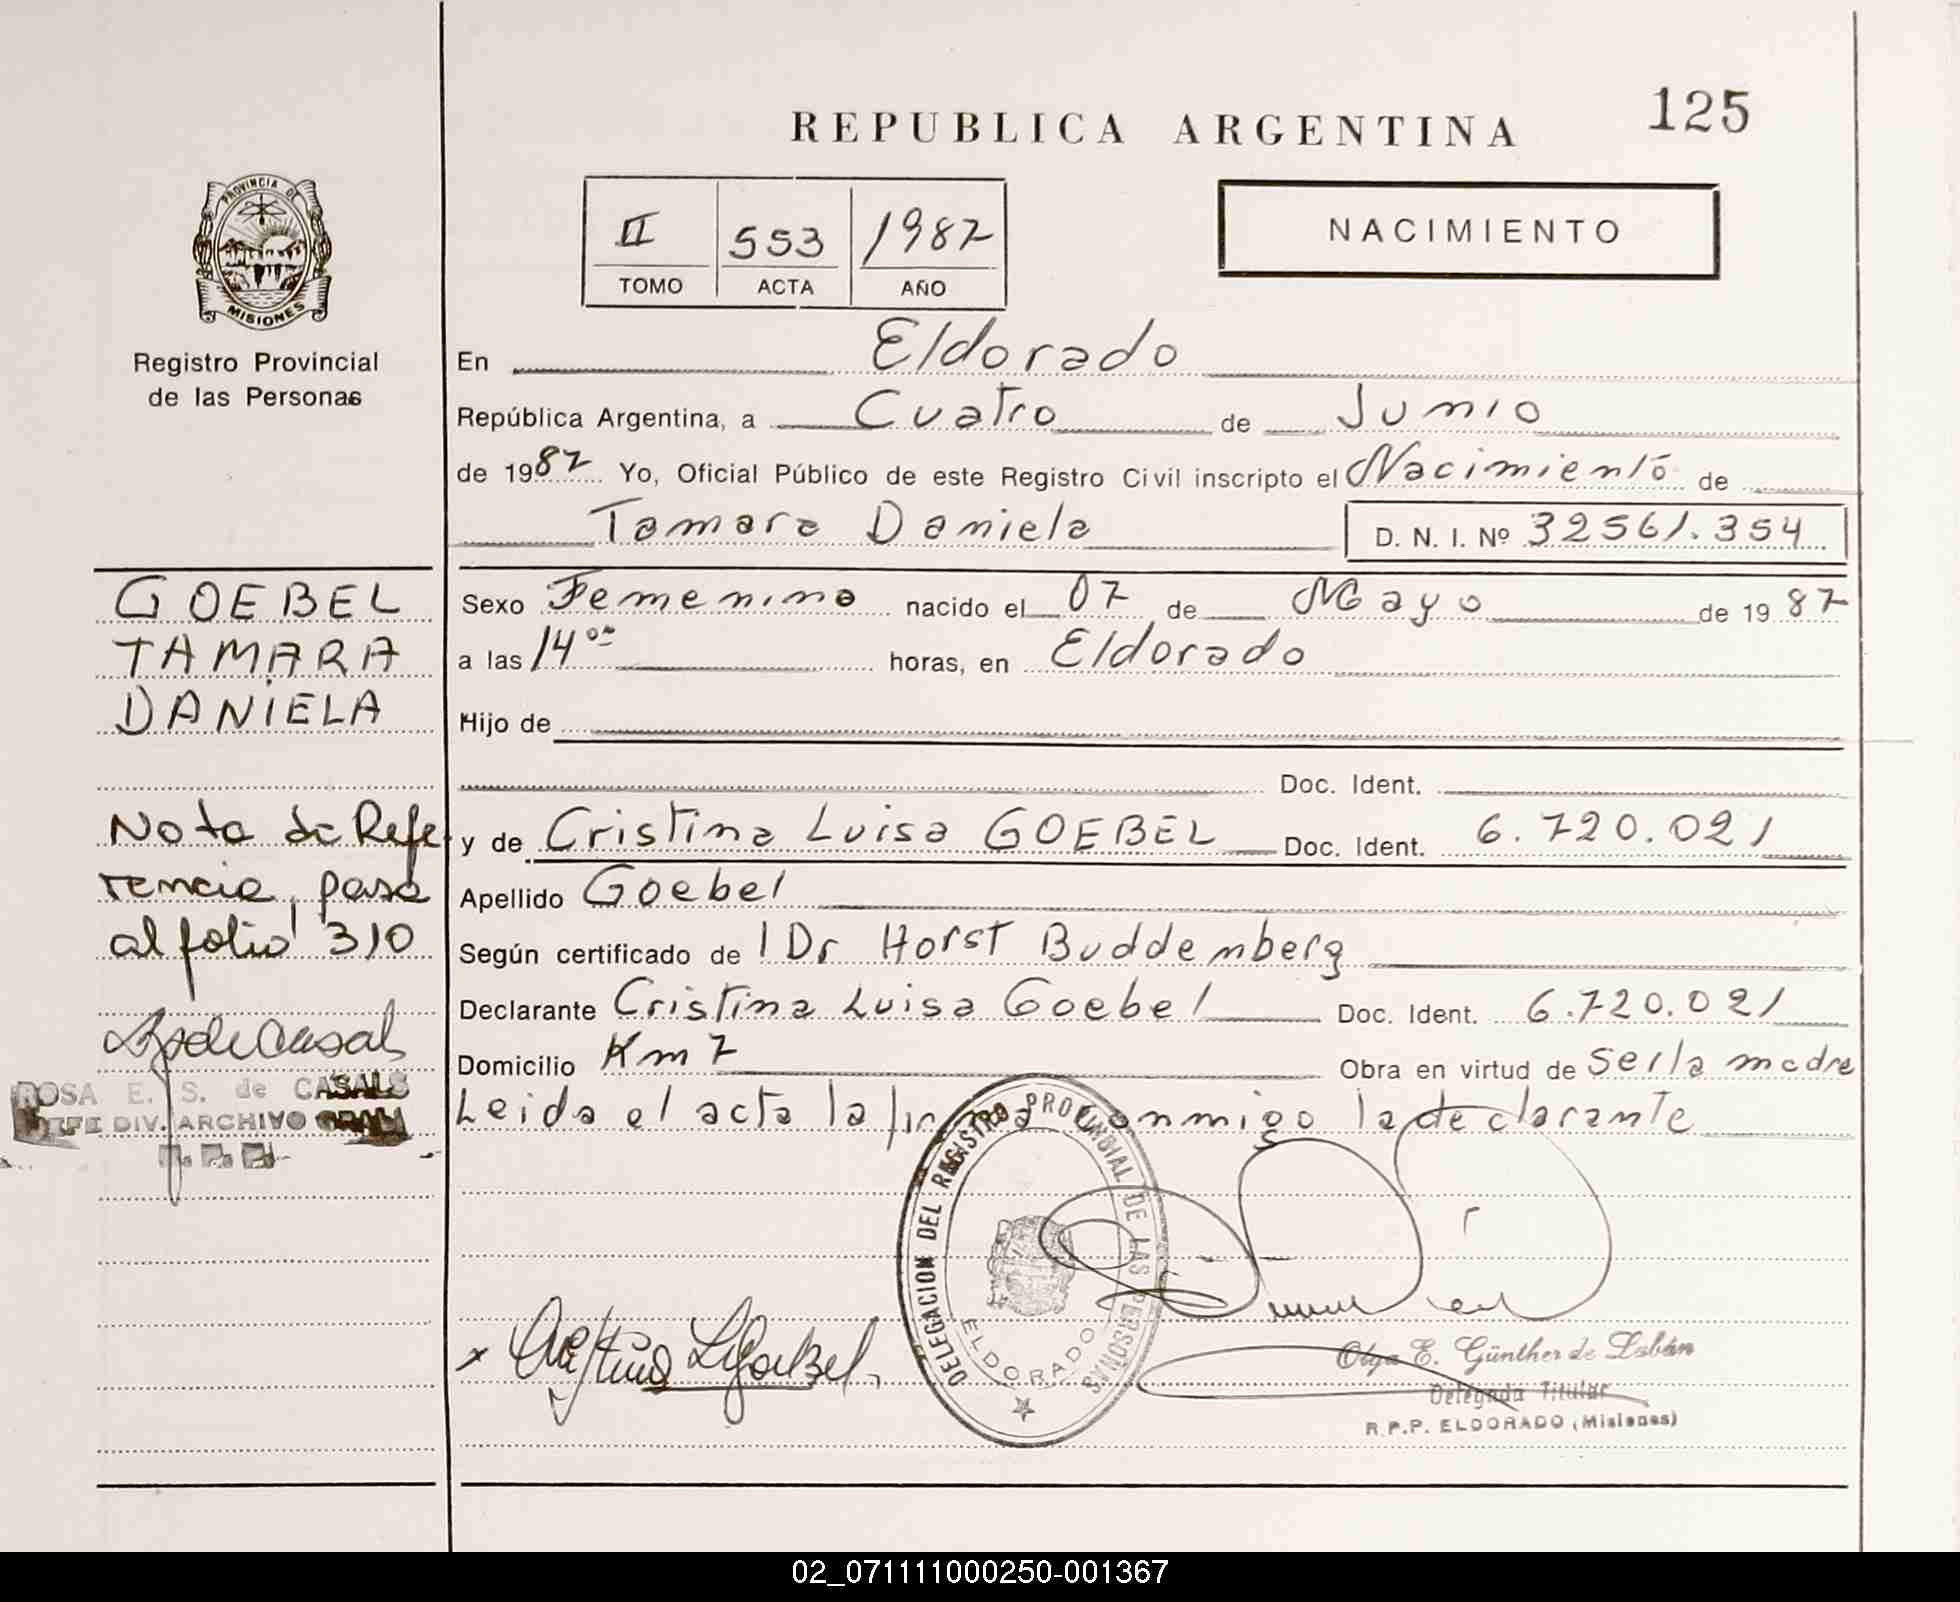 125
REPUBLICA ARGENTINA
PROVINCIA DE
MISIONES
Registro Provincial
de las Personas
II 553 1987
TOMO ACTA AÑO
NACIMIENTO
En Eldorado
República Argentina, a Cuatro de Junio
de 1987 Yo, Oficial Público de este Registro Civil inscripto el Nacimiento de
Tamara Daniela D. N. I. Nº 32561.354
GOEBEL
TAMARA
DANIELA
Nota de Refe
rencia, pasa
al folio 310
ROSA E. S. de CASALS
JEFE DIV. ARCHIVO GRAL
Sexo Femenino nacido el 07 de Mayo de 1987
a las 14 oo horas, en Eldorado
Hijo de
Doc. Ident.
y de Cristina Luisa GOEBEL Doc. Ident. 6.720.021
Apellido Goebel
Según certificado de l Dr Horst Buddemberg
Declarante Cristina Luisa Goebel Doc. Ident. 6.720.021
Domicilio Km 7 Obra en virtud de Ser la madre
Leida el acta la firma conmigo la declarante
DELEGACION DEL REGISTRO PROVINCIAL DE LAS PERSONAS
ELDORADO
x Cristina L Goebel
Olga E. Günther de Labán
Delegada Titular
R.P.P. ELDORADO (Misiones)
02_071111000250-001367